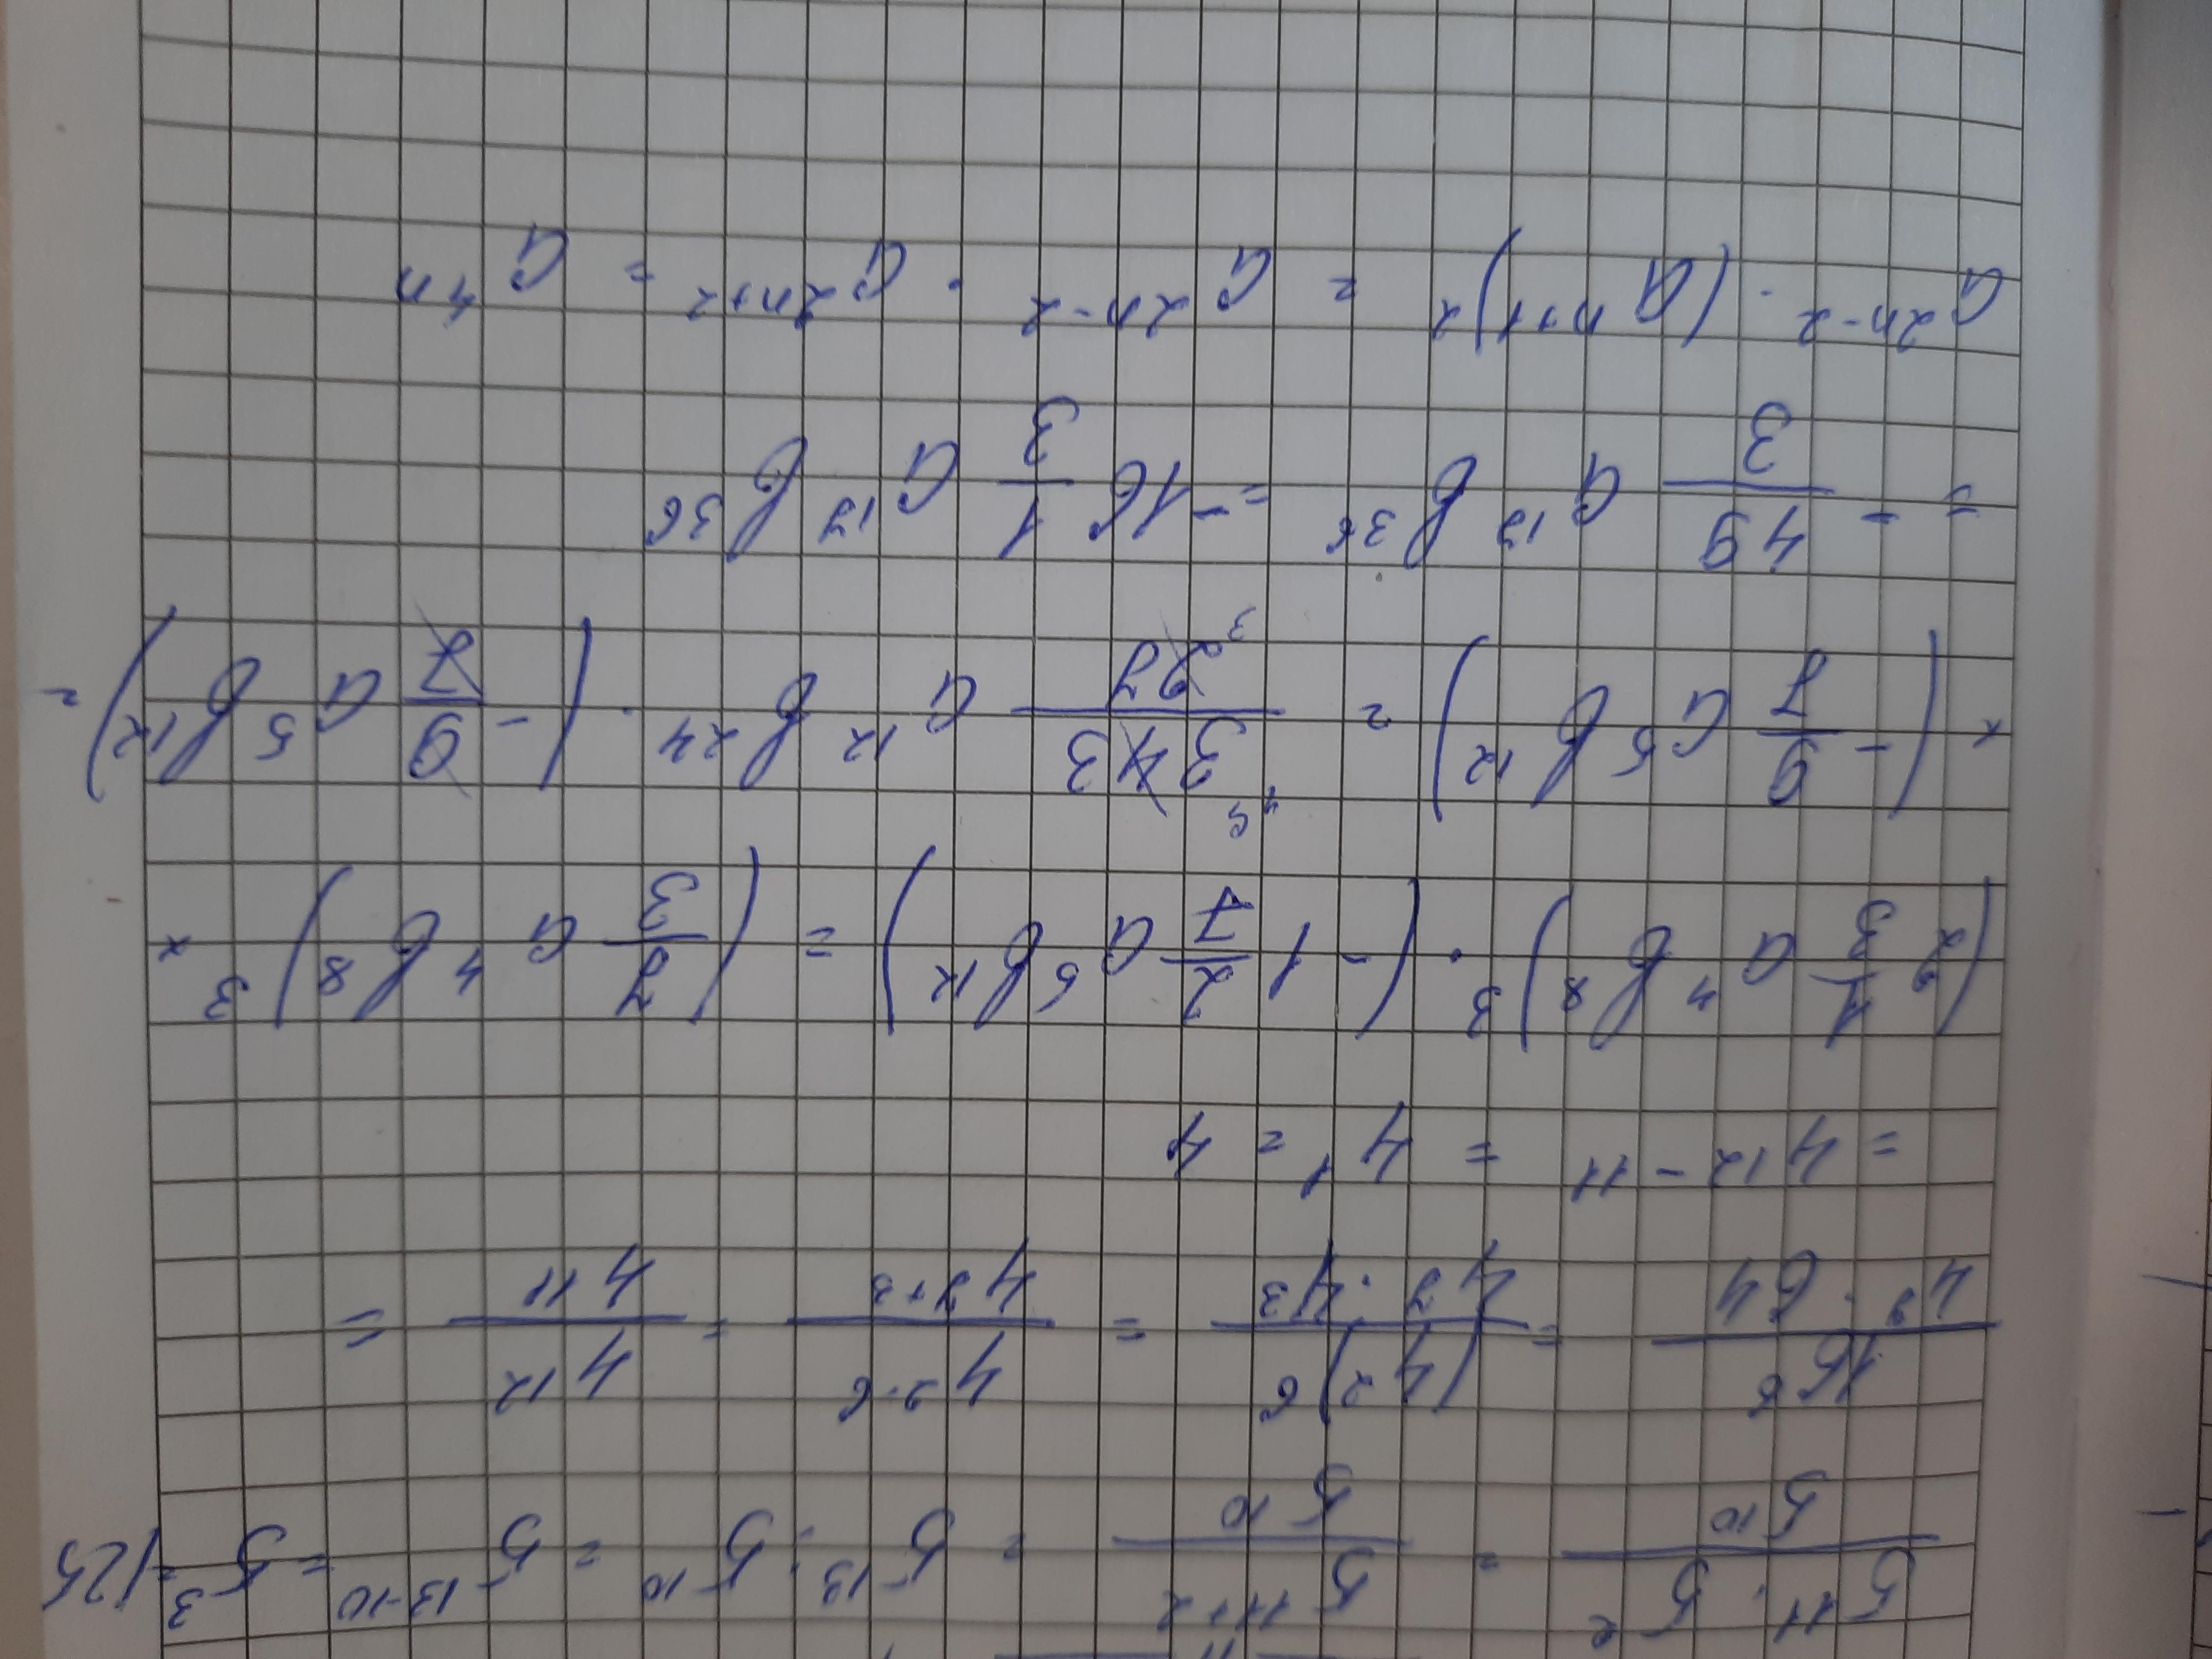 (5^11 · 5^2)/5^10 = 5^(11+2)/5^10 = 5^13 : 5^10 = 5^(13-10) = 5^3 = 125
16^6/(4^8 · 64) = (4^2)^6/(4^8 · 4^3) = 4^(2·6)/4^(8+3) = 4^12/4^11 =
= 4^(12-11) = 4^1 = 4
(2 1/3 a^4 b^8)^3 · (-1 2/7 a^5 b^12) = (7/3 a^4 b^8)^3 ×
× (-9/7 a^5 b^12) = 343/27 a^12 b^24 · (-9/7 a^5 b^12) =
= -49/3 a^17 b^36 = -16 1/3 a^17 b^36
a^(2n-2) · (a^(n+1))^2 = a^(2n-2) · a^(2n+2) = a^(4n)